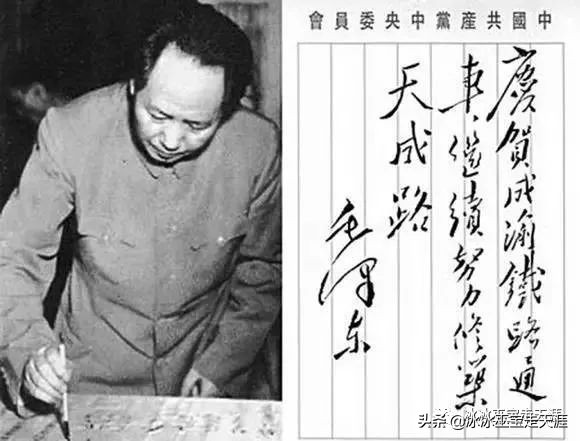 中國共產黨中央委員會
慶賀成渝鐵路通
車、繼續努力修築
天成路
毛澤东
头条 @冰冰亚宝走天涯